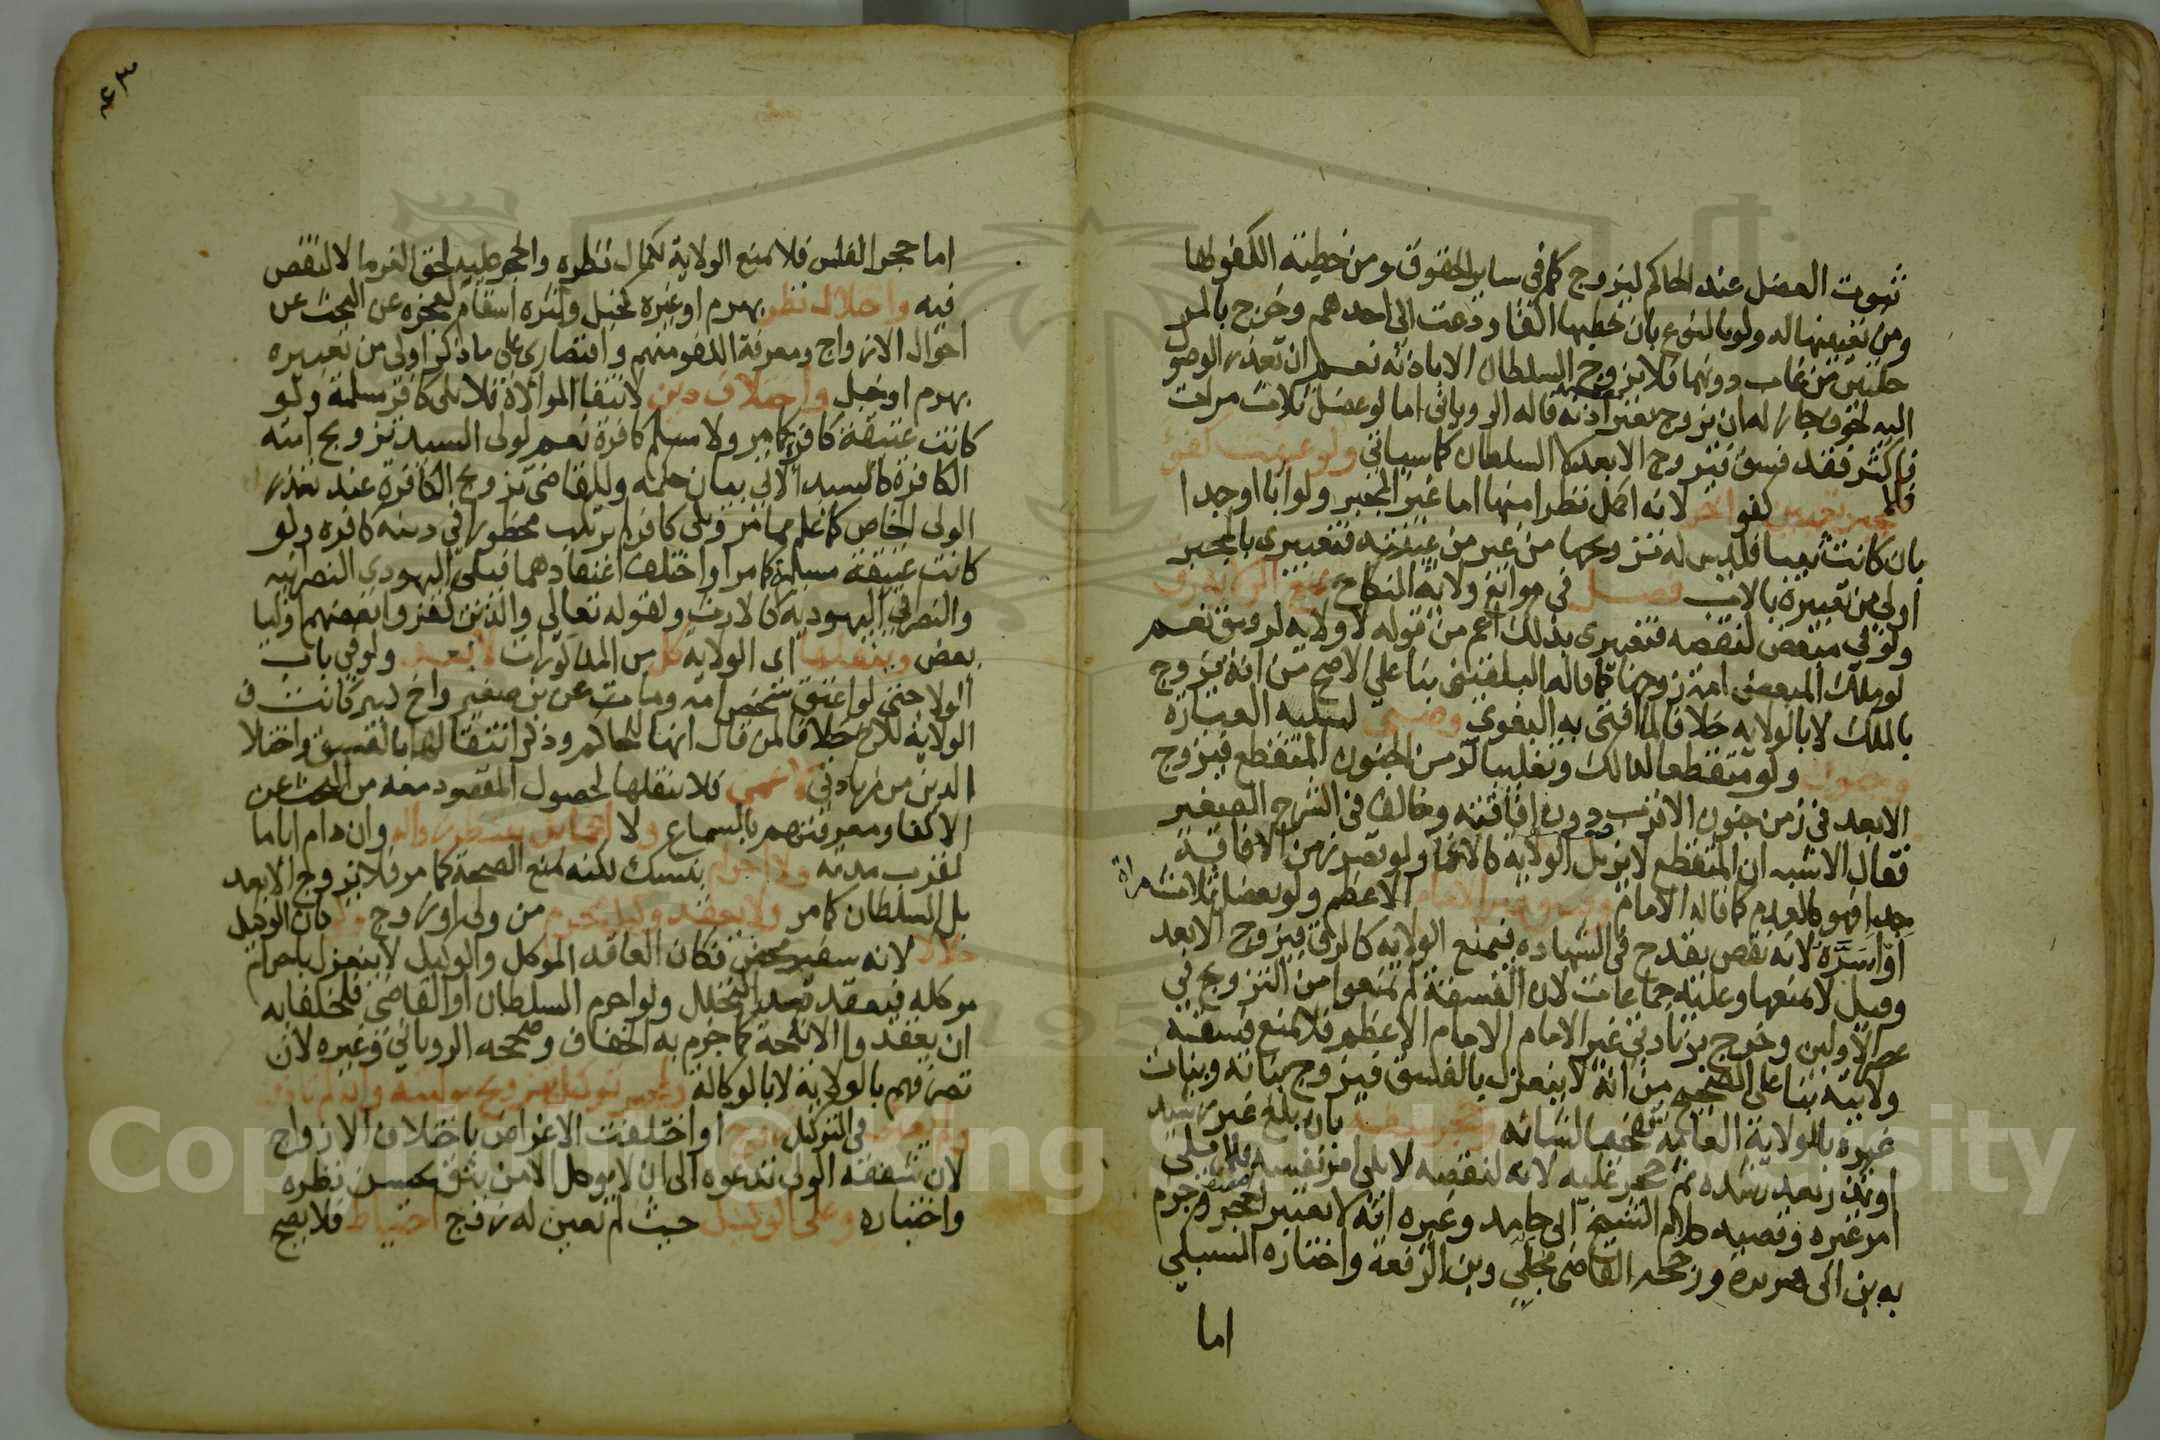 ثبوت العضل عند الحاكم ليزوج كما في ساير الحقوق ومن خطبة الكفو لها
ومن تعيينها له ولو بالنوع بان خطبها اكفا ودعت الى احدهم وخرج بالمر
حلتين من غاب دونهما فلا يزوج السلطان الا باذنه نعم ان تعذر الوصو
اليه لخوف جاز له ان يزوج بغير اذنه قاله الروياني اما لو عضل ثلاث مرات
فاكثر فقد فسق فيزوج الابعد لا السلطان كما سياتي ولو عينت كفؤ
فللمجبر تعيين كفو اخر لانه اكمل نظرا منها اما غير المجبر ولو ابا او جدا
بان كانت ثيبا فليس له تزويجها من غير من عينته فتعبيري بالمجبر
اولى من تعبيره بالاب فصل في موانع ولاية النكاح يمنع الولاية رق
ولو في مبعض لنقصه فتعبيري بذلك اعم من قوله لا ولاية لرقيق نعم
لو ملك المبعض امة زوجها كما قاله البلقيني بنا على الاصح من انه يزوج
بالملك لا بالولاية خلافا لما افتى به البغوي وصبى لسلبه العبارة
وجنون ولو متقطعا لذلك وتغليبا لزمن الجنون المتقطع فيزوج
الابعد في زمن جنون الاقرب دون افاقته وخالف في الشرح الصغير
فقال الاشبه ان المتقطع لا يزيل الولاية كالاغما ولو قصر زمن الافاقة
جدا فهو كالعدم كما قاله الامام وفسق غير الامام الاعظم ولو بعضل ثلاث مرات
او اسره لانه نقص يقدح في الشهاده فيمنع الولاية كالرق فيزوج الابعد
وقيل لا يمنعها وعليه جماعات لان الفسقة لم يمنعوا من التزويج في
عصر الاولين وخرج بزيادتي غير الامام الامام الاعظم فلا يمنع فسقه
ولايته بنا على الصحيح من انه لا ينعزل بالفسق فيزوج بناته وبنات
غيره بالولاية العامة تفخيما لشانه وحجر سفه بان بلغ غير رشيد
او بذر بعد رشده ثم حجر عليه لانه لنقصه لا يلي امر نفسه فلا يلي
امر غيره وقضيه كلام الشيخ ابي حامد وغيره انه لا يعتبر الحجر وجزم
به بن ابى هريرة ورجحه القاضي مجلي وبن الرفعة واختاره السبكي
اما
٤٣
اما حجر الفلس فلا يمنع الولاية لكمال نظره والحجر عليه لحق الغرما لا لنقص
فيه واختلال نظر بهرم او غيره كخبل وكثرة اسقام لعجزه عن البحث عن
احوال الازواج ومعرفة الكفو منهم واقتصاري على ما ذكر اولى من تعبيره
بهرم او خبل واختلاف دين لانتفا الموالاة فلا يلي كافر مسلمة ولو
كانت عتيقة كافر كما مر ولا مسلم كافرة نعم لولى السيد تزويج امته
الكافرة كالسيد الاتي بيان حكمه وللقاضي تزويج الكافرة عند تعذر
الولى الخاص كما علم مما مر ويلي كافر لم يرتكب محظورا في دينه كافره ولو
كانت عتيقة مسلم كما مر او اختلف اعتقادهما فيلي اليهودي النصرانيه
والنصراني اليهودية كالارث ولقوله تعالى والذين كفروا بعضهم اوليا
بعض وينقلها اى الولاية كل من المذكورات لابعد ولو في باب
الولا حتى لو اعتق شخص امه ومات عن بن صغير واخ كبير كانت
الولاية للاخ خلافا لمن قال انها للحاكم وذكر انتقالها بالفسق واختلا
الدين من زيادتي لا عمى فلا ينقلها لحصول المقصود معه من البحث عن
الاكفا ومعرفتهم بالسماع ولا اغما بل ينتظر زواله وان دام اياما
لقرب مدته ولا احرام بنسك لكنه يمنع الصحة كما مر فلا يزوج الابعد
بل السلطان كما مر ولا يعقد وكيل محرم من ولى او زوج فان الوكيل
حلال لانه سفير محض فكان العاقد الموكل والوكيل لا ينعزل باحرام
موكله فيعقد بعد التحلل ولو احرم السلطان او القاضي فلخلفايه
ان يعقدوا الانكحة كما جزم به الخفاف وصححه الروياني وغيره لان
تصرفهم بالولاية لا بالوكالة ولمجبر توكيل بتزويج موليته وان لم تاذن
في التوكيل او اختلفت الاغراض باختلاف الازواج
لان شفقة الولى تدعوه الى ان لا يوكل الا من يثق بحسن نظره
واختباره وعلى الوكيل حيث لم يعين له زوج احتياط فلا يصح